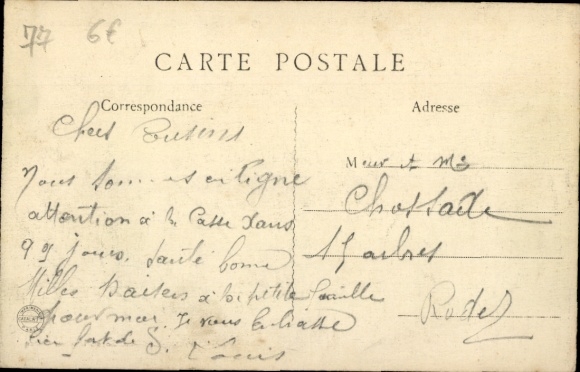 77 6€
CARTE POSTALE
Correspondance
Adresse
Chers Cousins
Nous sommes en ligne
attention à la Casse dans
9 jours. Santé bonne
Milles Baisers à la petite famille
pour moi. Je vous
Louis
Meur et Me
Rodez